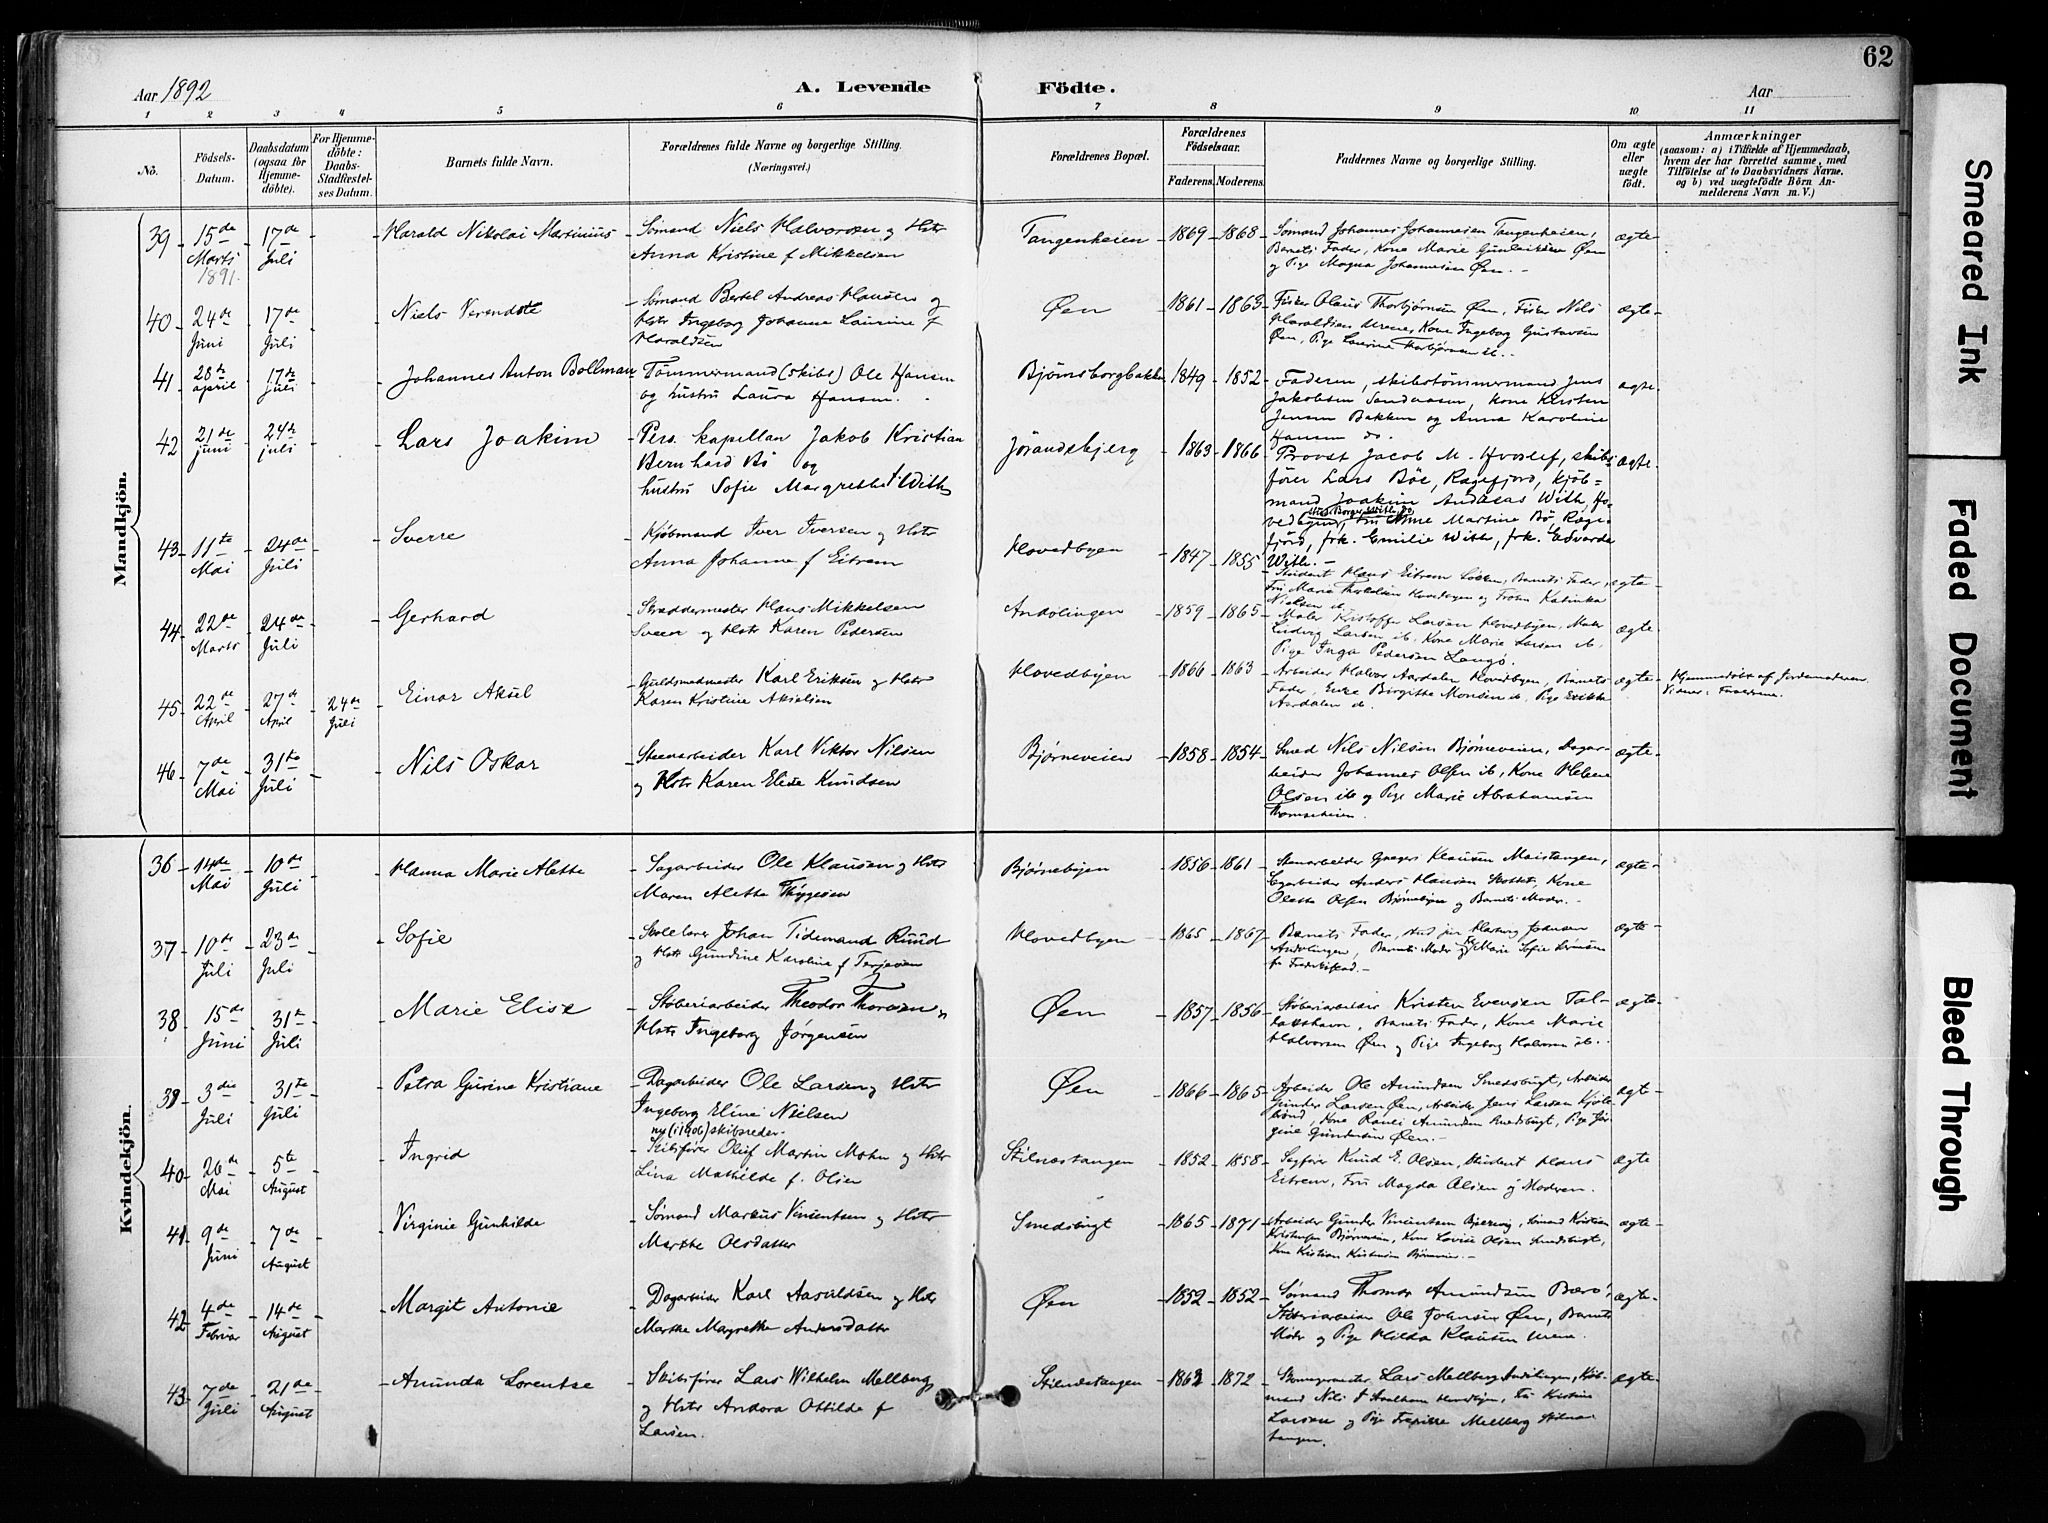 62
Aar 1892
A. Levende
Födte.
Aar
1 2 3 4 5 6 7 8 9 10 11
No.
Födsels-Datum.
Daabsdatum (ogsaa for Hjemme-döbte).
For Hjemme-döbte: Daabs-Stadfæstel-ses Datum.
Barnets fulde Navn.
Forældrenes fulde Navne og borgerlige Stilling.
(Næringsvei.)
Forældrenes Bopæl.
Forældrenes Födselsaar.
Faderens.
Moderens.
Faddernes Navne og borgerlige Stilling.
Om ægte eller uægte födt.
Anmærkninger
(saasom: a) i Tilfælde af Hjemmedaab,
hvem der har forrettet samme, med
Tilföielse af to Daabsvidners Navne.
og b) ved uægtefödte Börn An-
melderens Navn m. V.)
Mandkjön.
39 15de Marts 1891. 17de Juli Harald Nikolai Martinius
Sømand Niels Halvorsen og Hstr
Anna Kristine f Mikkelsen
Tangenheien 1869 1868
Sømand Johannes Johannesen Tangenheien,
Barnets Fader, Kone Marie Gunleiksen Øen
og Pige Magna Johannesen Øen.
ægte
40 24de Juni 17de Juli Niels
Sømand Bertel Andreas Hansen og
Hstr Ingeborg Johanne Laurine f
Haraldsen
Øen 1861 1863
Fisker Olaus Thorbjørnsen Øen, Fisker Nils
Haraldsen Urene, Kone Ingeborg Gustavsen
Øen, Pige Laurine Thorbjørnsen ib.
ægte
41 28de april 17de juli Johannes Anton Bollman
Tømmermand (skibs) Ole Hansen
og hustru Laura Hansen.
Bjørnsborgbakken 1849 1852
Faderen, skibstømmermand Jens
Jakobsen Sandaasen, kone Kirsten
Jensen Bakken og Anna Karoline
Hansen do.
ægte
42 21de juni 24de juli Lars Joakim
Pers. kapellan Jakob Kristian
Bernhard Bö og
hustru Sofie Margrethe f With
Jørandsbjerg 1863 1866
Provst Jacob M. Hvoslef, skibs
fører Lars Böe, Rægefjord, kjøb=
mand Joakim Andreas With, Ho-
vedbyen, fru Anne Martine Bö, Ræge
fjord, frk. Emilie With, frk. Edvarda
With.
ægte
43 11te Mai 24de Juli Sverre
Kjøbmand Iver Iversen og Hstr
Anna Johanne f Eitrem
Hovedbyen 1847 1855
Student Hans Eitrem Løkken, Barnets Fader,
Fru Marie Thorkelsen Hovedbyen og Frøken Katinka
Nielsen ib.
ægte
44 22de Marts 24de Juli Gerhard
Skræddermester Hans Mikkelsen
Sveen og Hstr Karen Pedersen
Andølingen 1859 1865
Maler Kristoffer Larsen Hovedbyen, Maler
Ludvig Larsen ib, Kone Marie Larsen ib,
Pige Inga Pedersen Langø.
ægte
45 22de April 27de April 24de Juli Einar Aksel
Guldsmedmester Karl Eriksen og Hstr
Karen Kristine Akselsen
Hovedbyen 1866 1863
Arbeider Halvor Aardalen Hovedbyen, Barnets
Fader, Enke Birgitte Monsen ib, Pige
Aardalen ib.
ægte
Hjemmedøbt af Jordemoderen
46 7de Mai 31te Juli Nils Oskar
Steenarbeider Karl Viktor Nilsen
og Hstr Karen Elise Knudsen
Bjørneveien 1858 1854
Smed Nils Nilsen Bjørneveien, Dagar-
beider Johannes Olsen ib, Kone Helene
Olsen ib og Pige Marie Abrahamsen
ægte
Kvindekjön.
36 14de Mai 10de Juli Hanna Marie Alette
Sagarbeider Ole Klausen og Hstr
Maren Alette Thygesen
Bjørnebyen 1856 1861
Stenarbeider Klausen Maistangen,
Anders Hansen Kone
Olette Olsen Bjørnebyen og Barnets Moder.
ægte
37 10de Juli 23de Juli Sofie
Skolelærer Johan Tidemand Ruud
og Hstr Gundine Karoline f Terjesen
Hovedbyen 1865 1867
Barnets Fader, stud jur Johnsen
Andølingen, Barnets Moder og Marie Sofie
fr Frederikstad.
ægte
38 15de Juni 31te Juli Marie Elise
Støberiarbeider Theodor Thorsen og
Hstr Ingeborg Jørgensen
Øen 1857 1856
Støberiarbeider Kristen Evensen
Barnets Fader, Kone Marie
Halvorsen Øen og Pige Ingeborg Halvorsen ib.
ægte
39 3die Juli 31te Juli Petra Gurine Kristiane
Dagarbeider Ole Larsen og Hstr
Ingeborg Eline Nielsen
Øen 1866 1865
Arbeider Ole Amundsen Smedsbugt, Arbeider
Gunder Larsen Øen, Arbeider Jens Larsen
Kone Amundsen Smedsbugt, Pige Jør
gine Gundersen Øen.
ægte
40 26de Mai 5te August Ingrid
ny (i 1906) skibsreder
Skibsfører Oluf Martin Mohn og Hstr
Lina Mathilde f. Olsen
Stilnestangen 1852 1858
Sagfører Knud E. Olsen, Student Hans
Eitrem, Fru Magda Olsen og Moderen.
ægte
41 9de Juni 7de August Virginie Gunhilde
Sømand Markus Vincentsen og Hstr
Marthe Olsdatter
Smedsbugt 1865 1871
Arbeider Gunder Vincentsen Sømand Kristian
Kristensen Bjørneveien, Kone Lovise Olsen Smedsbugt,
ægte
42 4de Februar 14de August Margit Antonie
Dagarbeider Karl Aasuldsen og Hstr
Marthe Margrethe Andersdatter
Øen 1852 1852
Sømand Thomas Amundsen Barø,
Støberiarbeider Ole Johnsen Øen, Barnets
Moder og Pige Hilda Klausen Urene.
ægte
43 7de Juli 21de August Amunda Lorentse
Skibsfører Lars Wilhelm Mellberg
og Hstr Andora Ottilde f
Larsen.
Stilnestangen 1862 1872
Lars Mellberg Andølingen, Kjøb-
mand Nils Hovedbyen, Fru Kristine
Larsen og Pige Mellberg Stilnes
tangen.
ægte
Smeared Ink
Faded Document
Bleed Through